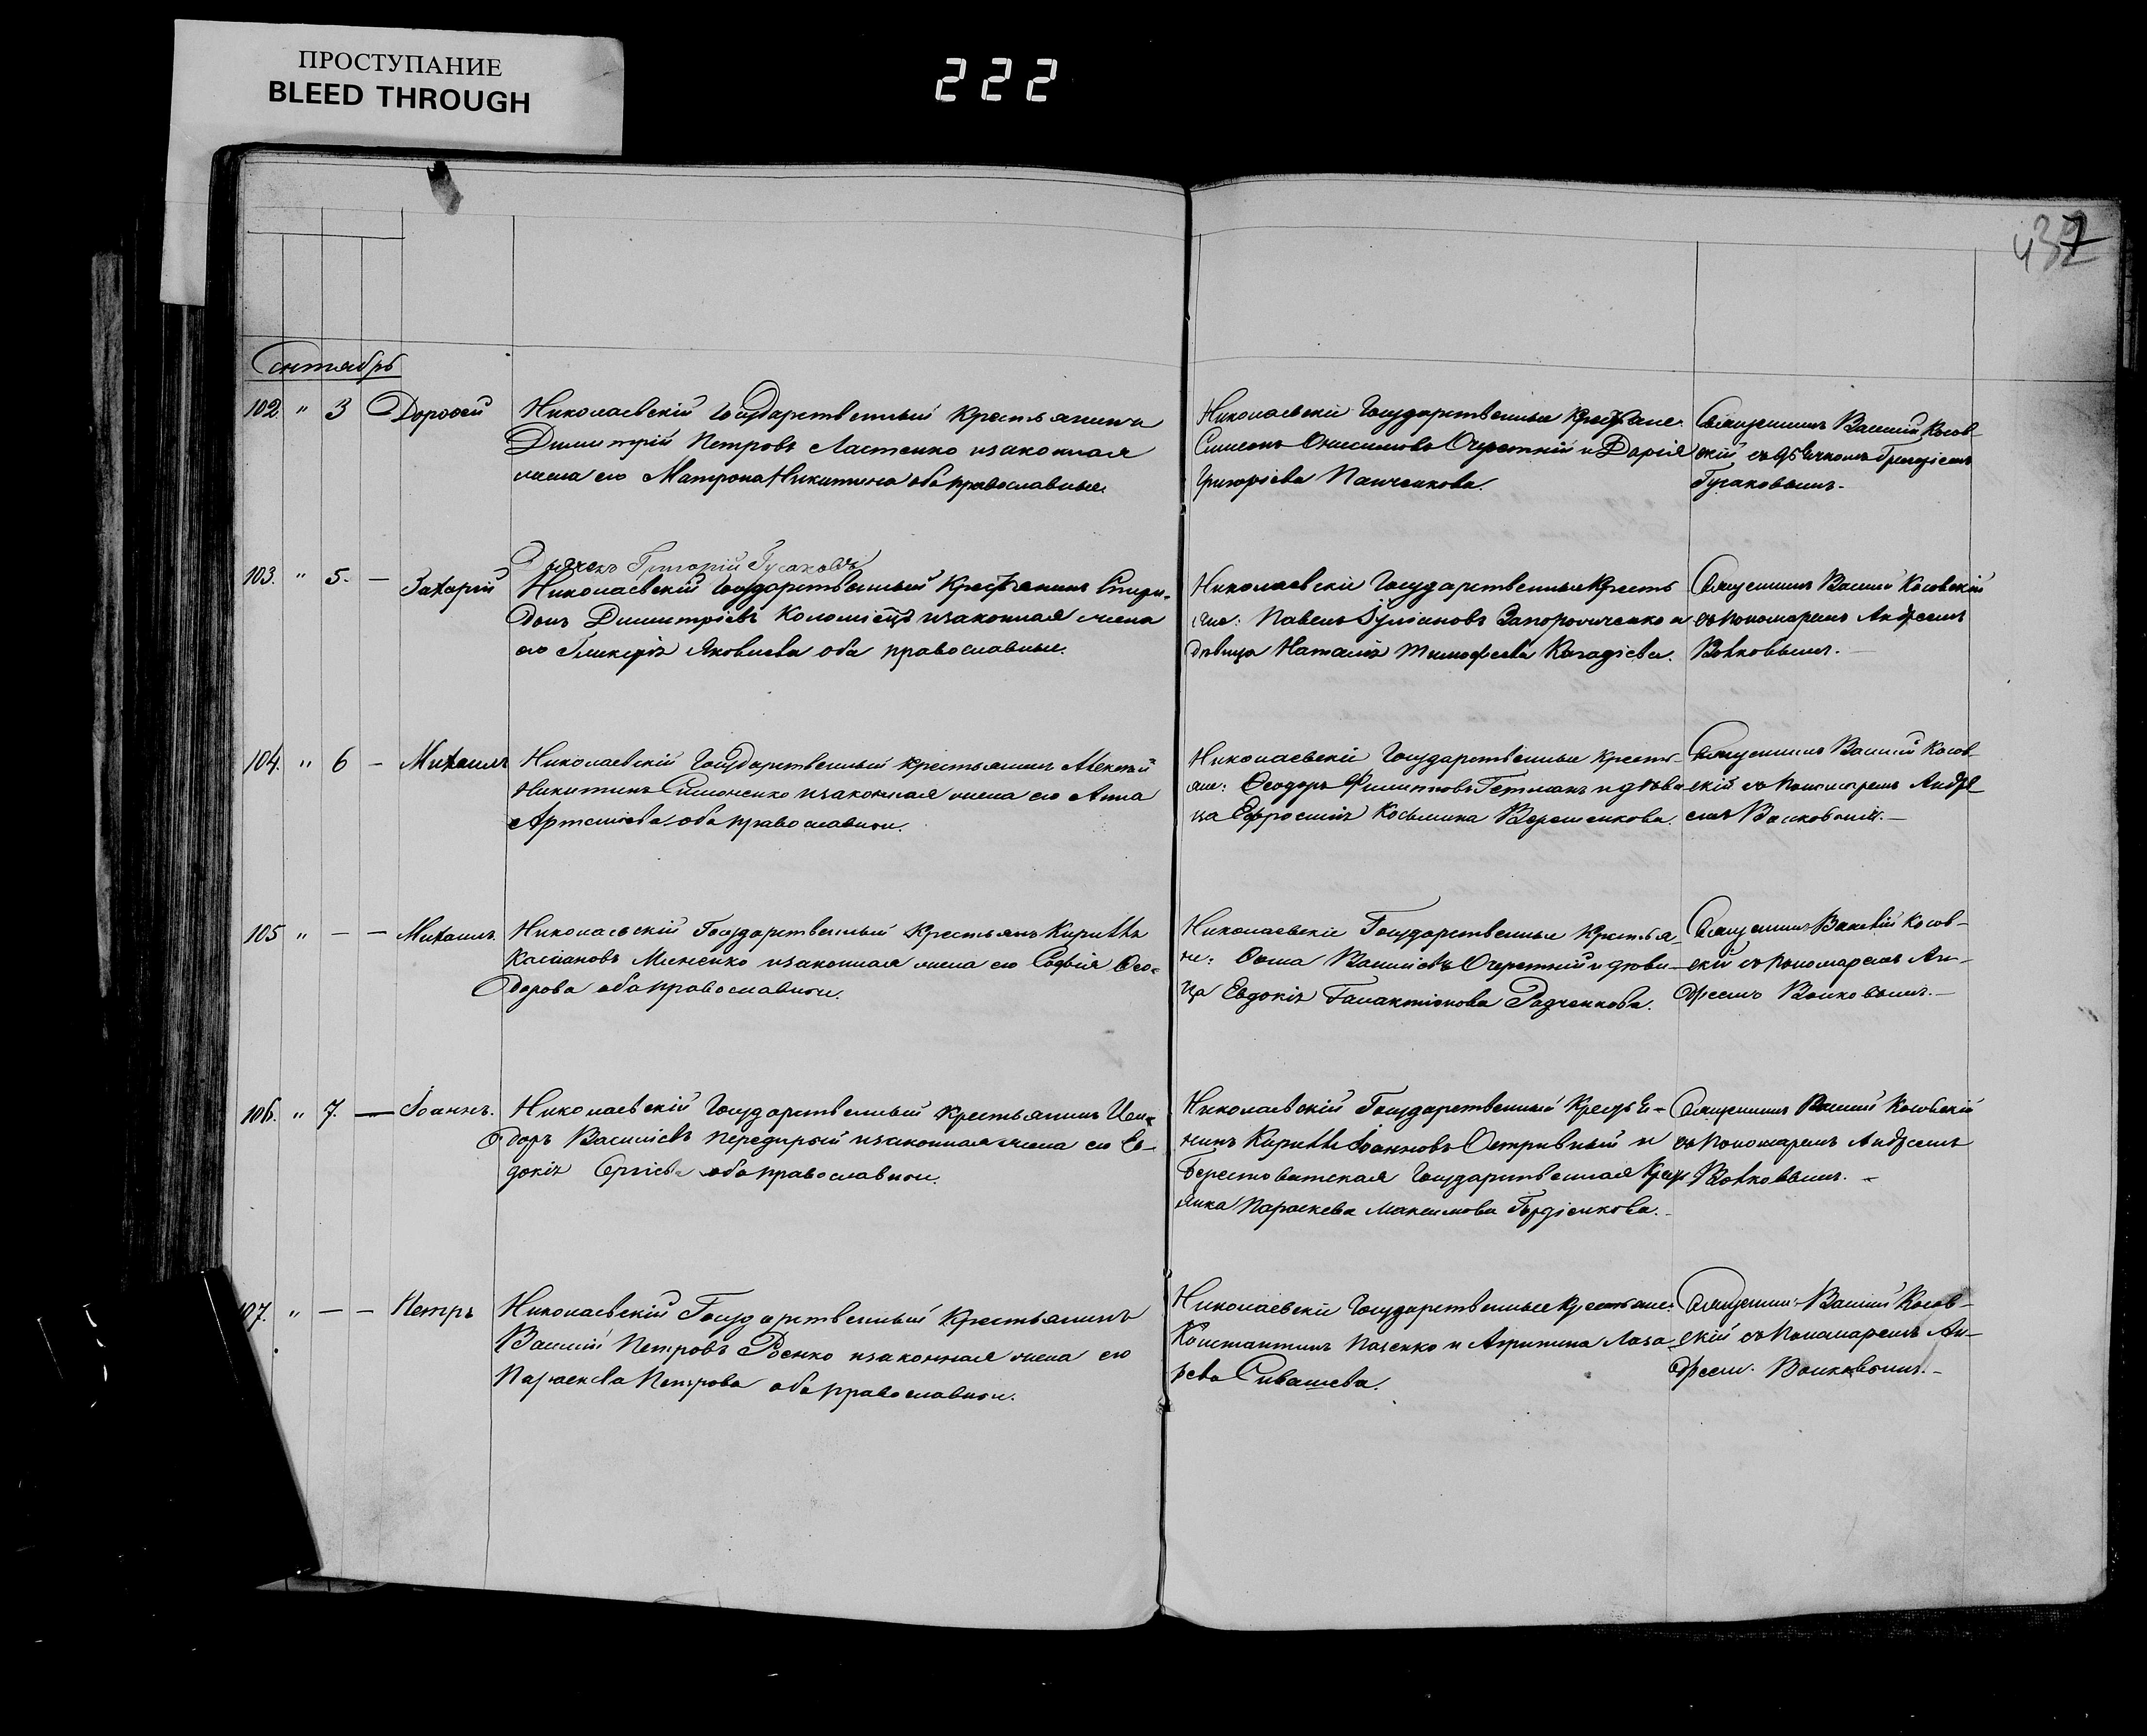 ПРОСТУПАНИЕ
BLEED THROUGH
222
437
Сентябрь
102. " 3 Дороѳей
Николаевскій Государственный крестьянинъ
Димитрій Петровъ Ластенко изаконная
жена его Матрона Никитина оба православные.
Николаевскіе Государственные Крестьяне.
Симеонъ Онисимовъ Очеретній и Дарія
Григоріева Панченкова.
Священникъ Василій Косов-
скій съ дьячкомъ Григоріемъ
Гусаковымъ.-
Дьячекъ Григорій Гусаковъ
103. " 5. — Захарій
Николаевскій Государственный Крестьянинъ Спири-
донъ Димитріевъ Коломіецъ изаконная жена
его Гликерія Яковлева оба православные.
Николаевскіе Государственные Кресть
яне: Павелъ Іуліановъ Запорожченко и
дѣвица Наталія Тимофеева
Священникъ Василій Косовскій
съ пономаремъ Андреемъ
Волковымъ.—
104. " 6 — Михаилъ
Николаевскій Государственный крестьянинъ Алексѣй
Никитинъ Симоненко изаконная жена его Анна
Артеміева оба православнои.
Николаевскіе Государственные Кресть-
яне: Ѳеодоръ Филиповъ Гетманъ и дѣви
ца Ефросинія Косьмина Верещенкова.
Священникъ Василій Косов-
скій съ пономаремъ Андре
емъ Волковымъ.—
105 " — — Михаилъ.
Николаевскій Государственный Крестьянъ Кириллъ
Касіановъ Миненко изаконная жена его Софія Ѳео-
дорова оба православнои.
Николаевскіе Государственные Крестья-
не: Ѳома Василіевъ Очеретній и дѣви-
ца Евдокія Галактіонова Радченкова.
Священникъ Василій Косов-
скій съ Пономаремъ Ан-
дреемъ Волковымъ.—
106. " 7. — Іоаннъ.
Николаевскій Государственный Крестьянинъ Иси-
доръ Василіевъ Передирій изаконная жена его Ев-
докія Сергіева оба православнои.
Николаевскій Государственный Крестья-
нинъ Кириллъ Іоанновъ Остривный и
Берестоватская Государственная Крест
янка Параскева Максимова Гордіенкова.-
Священникъ Василій Косовскій
съ Пономаремъ Андреемъ
Волковымъ. -
107. " — — Петръ
Николаевскій Государственный Крестьянинъ
Василій Петровъ Роенко изаконная жена его
Параскева Петрова оба православнои.
Николаевскіе Государственные крестьяне:
Константинъ Пазенко и Агрипина Лаза-
рева Сивашева.
Священникъ Василій Косов-
скій съ Пономаремъ Ан-
дреемъ Волковымъ.-